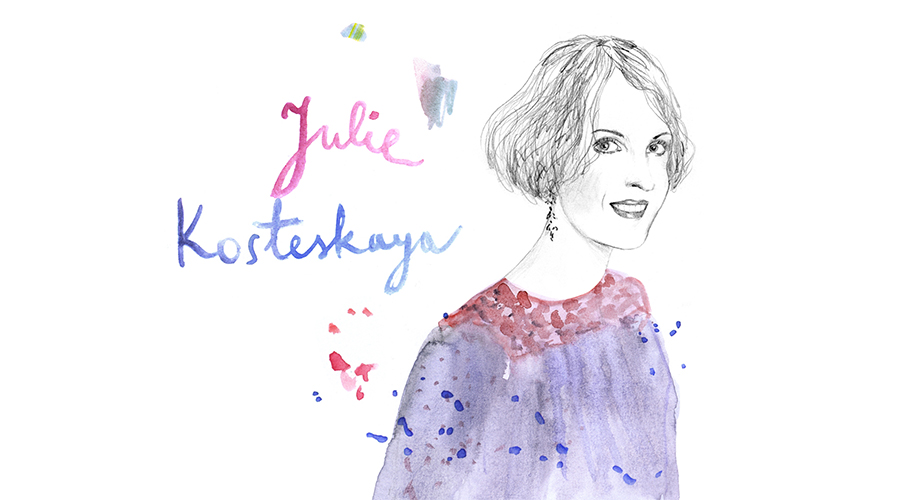 Julie
Kosteskaya